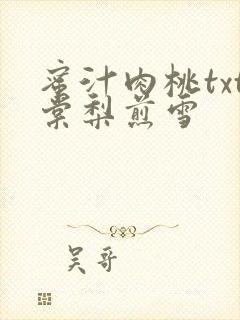 蜜汁肉桃txt
棠梨煎雪
吴哥